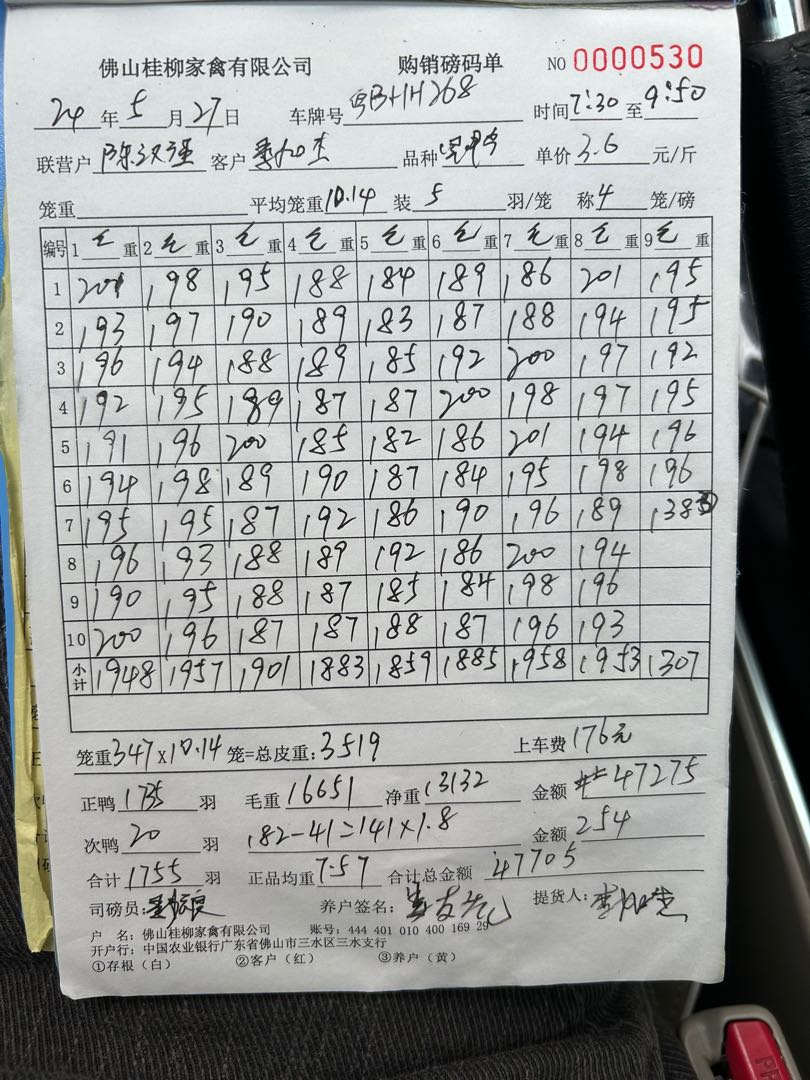 佛山桂柳家禽有限公司 购销磅码单 NO 0000530
24 年 5 月 27 日 车牌号 粤B+1H268 时间 7:30 至 9:50
联营户 陈汉强 客户 品种 单价 3.6 元/斤
笼重 平均笼重 10.14 装 5 羽/笼 称 4 笼/磅
编号 1 毛 重 2 毛 重 3 毛 重 4 毛 重 5 毛 重 6 毛 重 7 毛 重 8 毛 重 9 毛 重
1 201 198 195 188 184 189 186 201 195
2 193 197 190 189 183 187 188 194 195
3 196 194 188 189 185 192 200 197 192
4 192 195 189 187 187 200 198 197 195
5 191 196 200 185 182 186 201 194 196
6 194 198 189 190 187 184 195 198 196
7 195 195 187 192 186 190 196 189 138 ③
8 196 193 188 189 192 186 200 194
9 190 195 188 187 185 184 198 196
10 200 196 187 187 188 187 196 193
小计 1948 1957 1901 1883 1859 1885 1958 1953 1307
笼重 347×10.14 笼=总皮重: 3519 上车费 176元
正鸭 1735 羽 毛重 16651 净重 13132 金额 47275
次鸭 20 羽 182-41=141×1.8 金额 254
合计 1755 羽 正品均重 7.57 合计总金额 47705
司磅员: 养户签名: 提货人:
户 名: 佛山桂柳家禽有限公司 账号: 444 401 010 400 169 29
开户行: 中国农业银行广东省佛山市三水区三水支行
①存根（白） ②客户（红） ③养户（黄）